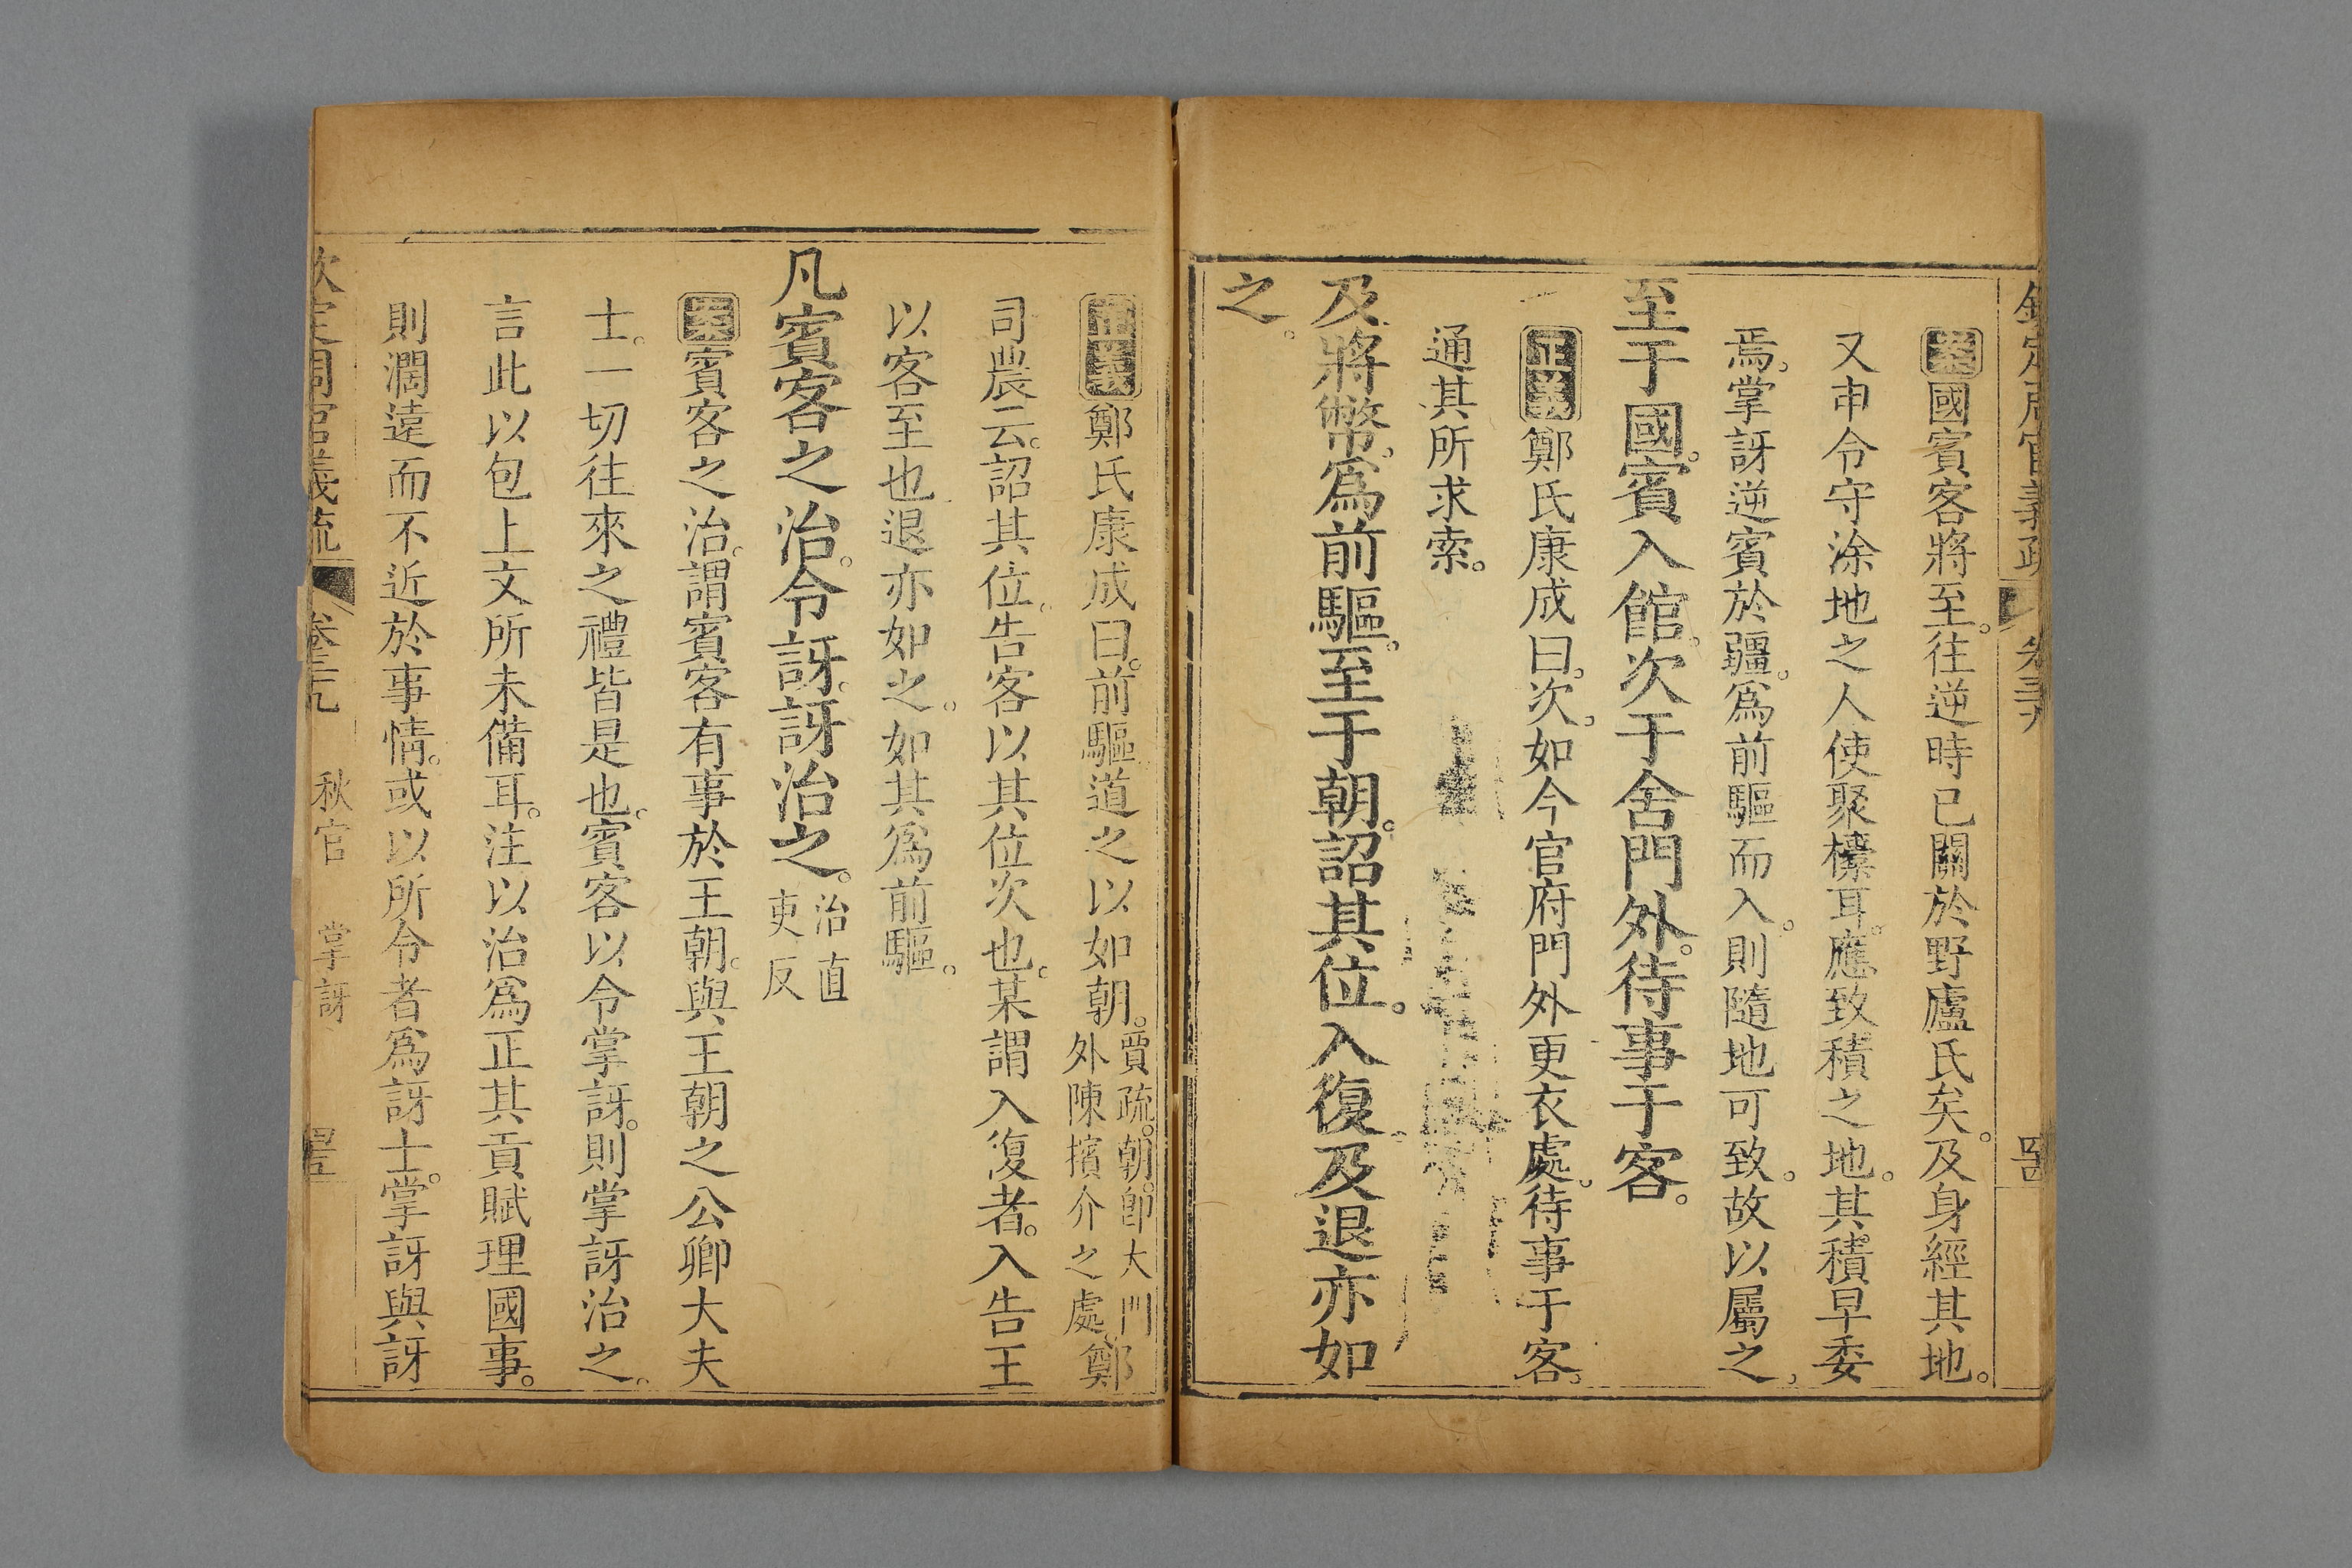 欽定周官義疏 卷三十九 四十四
案國賓客將至。往逆時已關於野廬氏矣。及身經其地。
又申令守涂地之人使聚檽耳。應致積之地。其積早委
焉。掌訝逆賓於疆。爲前驅而入。則隨地可致。故以屬之。
至于國。賓入館。次于舍門外。待事于客。
正義鄭氏康成曰。次。如今官府門外更衣處。待事于客。
通其所求索。
及將幣。爲前驅。至于朝。詔其位。入復。及退亦如
之。
正義鄭氏康成曰。前驅道之以如朝。賈疏。朝。卽大門外陳擯介之處。鄭
司農云。詔其位。告客以其位次也。某謂入復者。入告王
以客至也退亦如之。如其爲前驅。
凡賓客之治。令訝。訝治之。治直吏反
案賓客之治。謂賓客有事於王朝。與王朝之公卿大夫
士。一切往來之禮皆是也。賓客以令掌訝。則掌訝治之。
言此以包上文所未備耳。注以治爲正其貢賦理國事。
則濶遠而不近於事情。或以所令者爲訝士。掌訝與訝
欽定周官義疏 卷三十九 秋官 掌訝 四十五